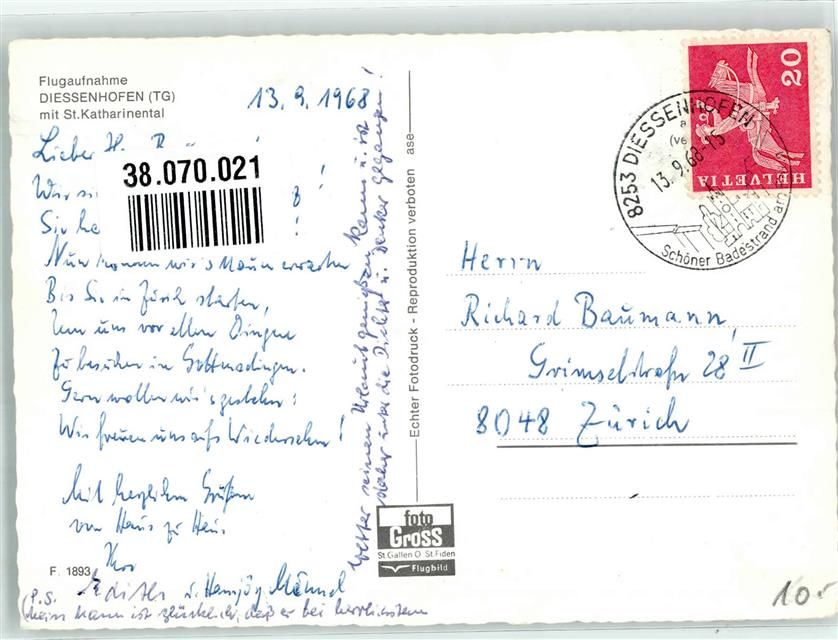 Flugaufnahme
DIESSENHOFEN (TG)
mit St.Katharinental
13. 9. 1968
Lieber H. R
38.070.021
Wir si
Sie ha
Nun können wir's kaum erwarten
Bis Sie in Zürich starten,
Um uns vor allen Dingen
Zu besuchen in Gottmadingen.
Gern wollen wir's gestehen:
Wir freuen uns aufs Wiedersehen!
Mit herzlichen Grüßen
von Haus zu Haus
Ihre
Edith u. Hansjörg
F. 1893
(P.S. Mein Mann ist glücklich, daß er bei herrlichstem
Wetter seinen Urlaub genießen kann u. ist
daher unter die Dichter u. Denker gegangen!
Echter Fotodruck - Reproduktion verboten ase
foto
Gross
St.Gallen O St.Fiden
Flugbild
HELVETIA
20
8253 DIESSENHOFEN
13.9.68-15
Schöner Badestrand am
Herrn
Richard Baumann
Grimselstraße 28 II
8048 Zürich
10.-